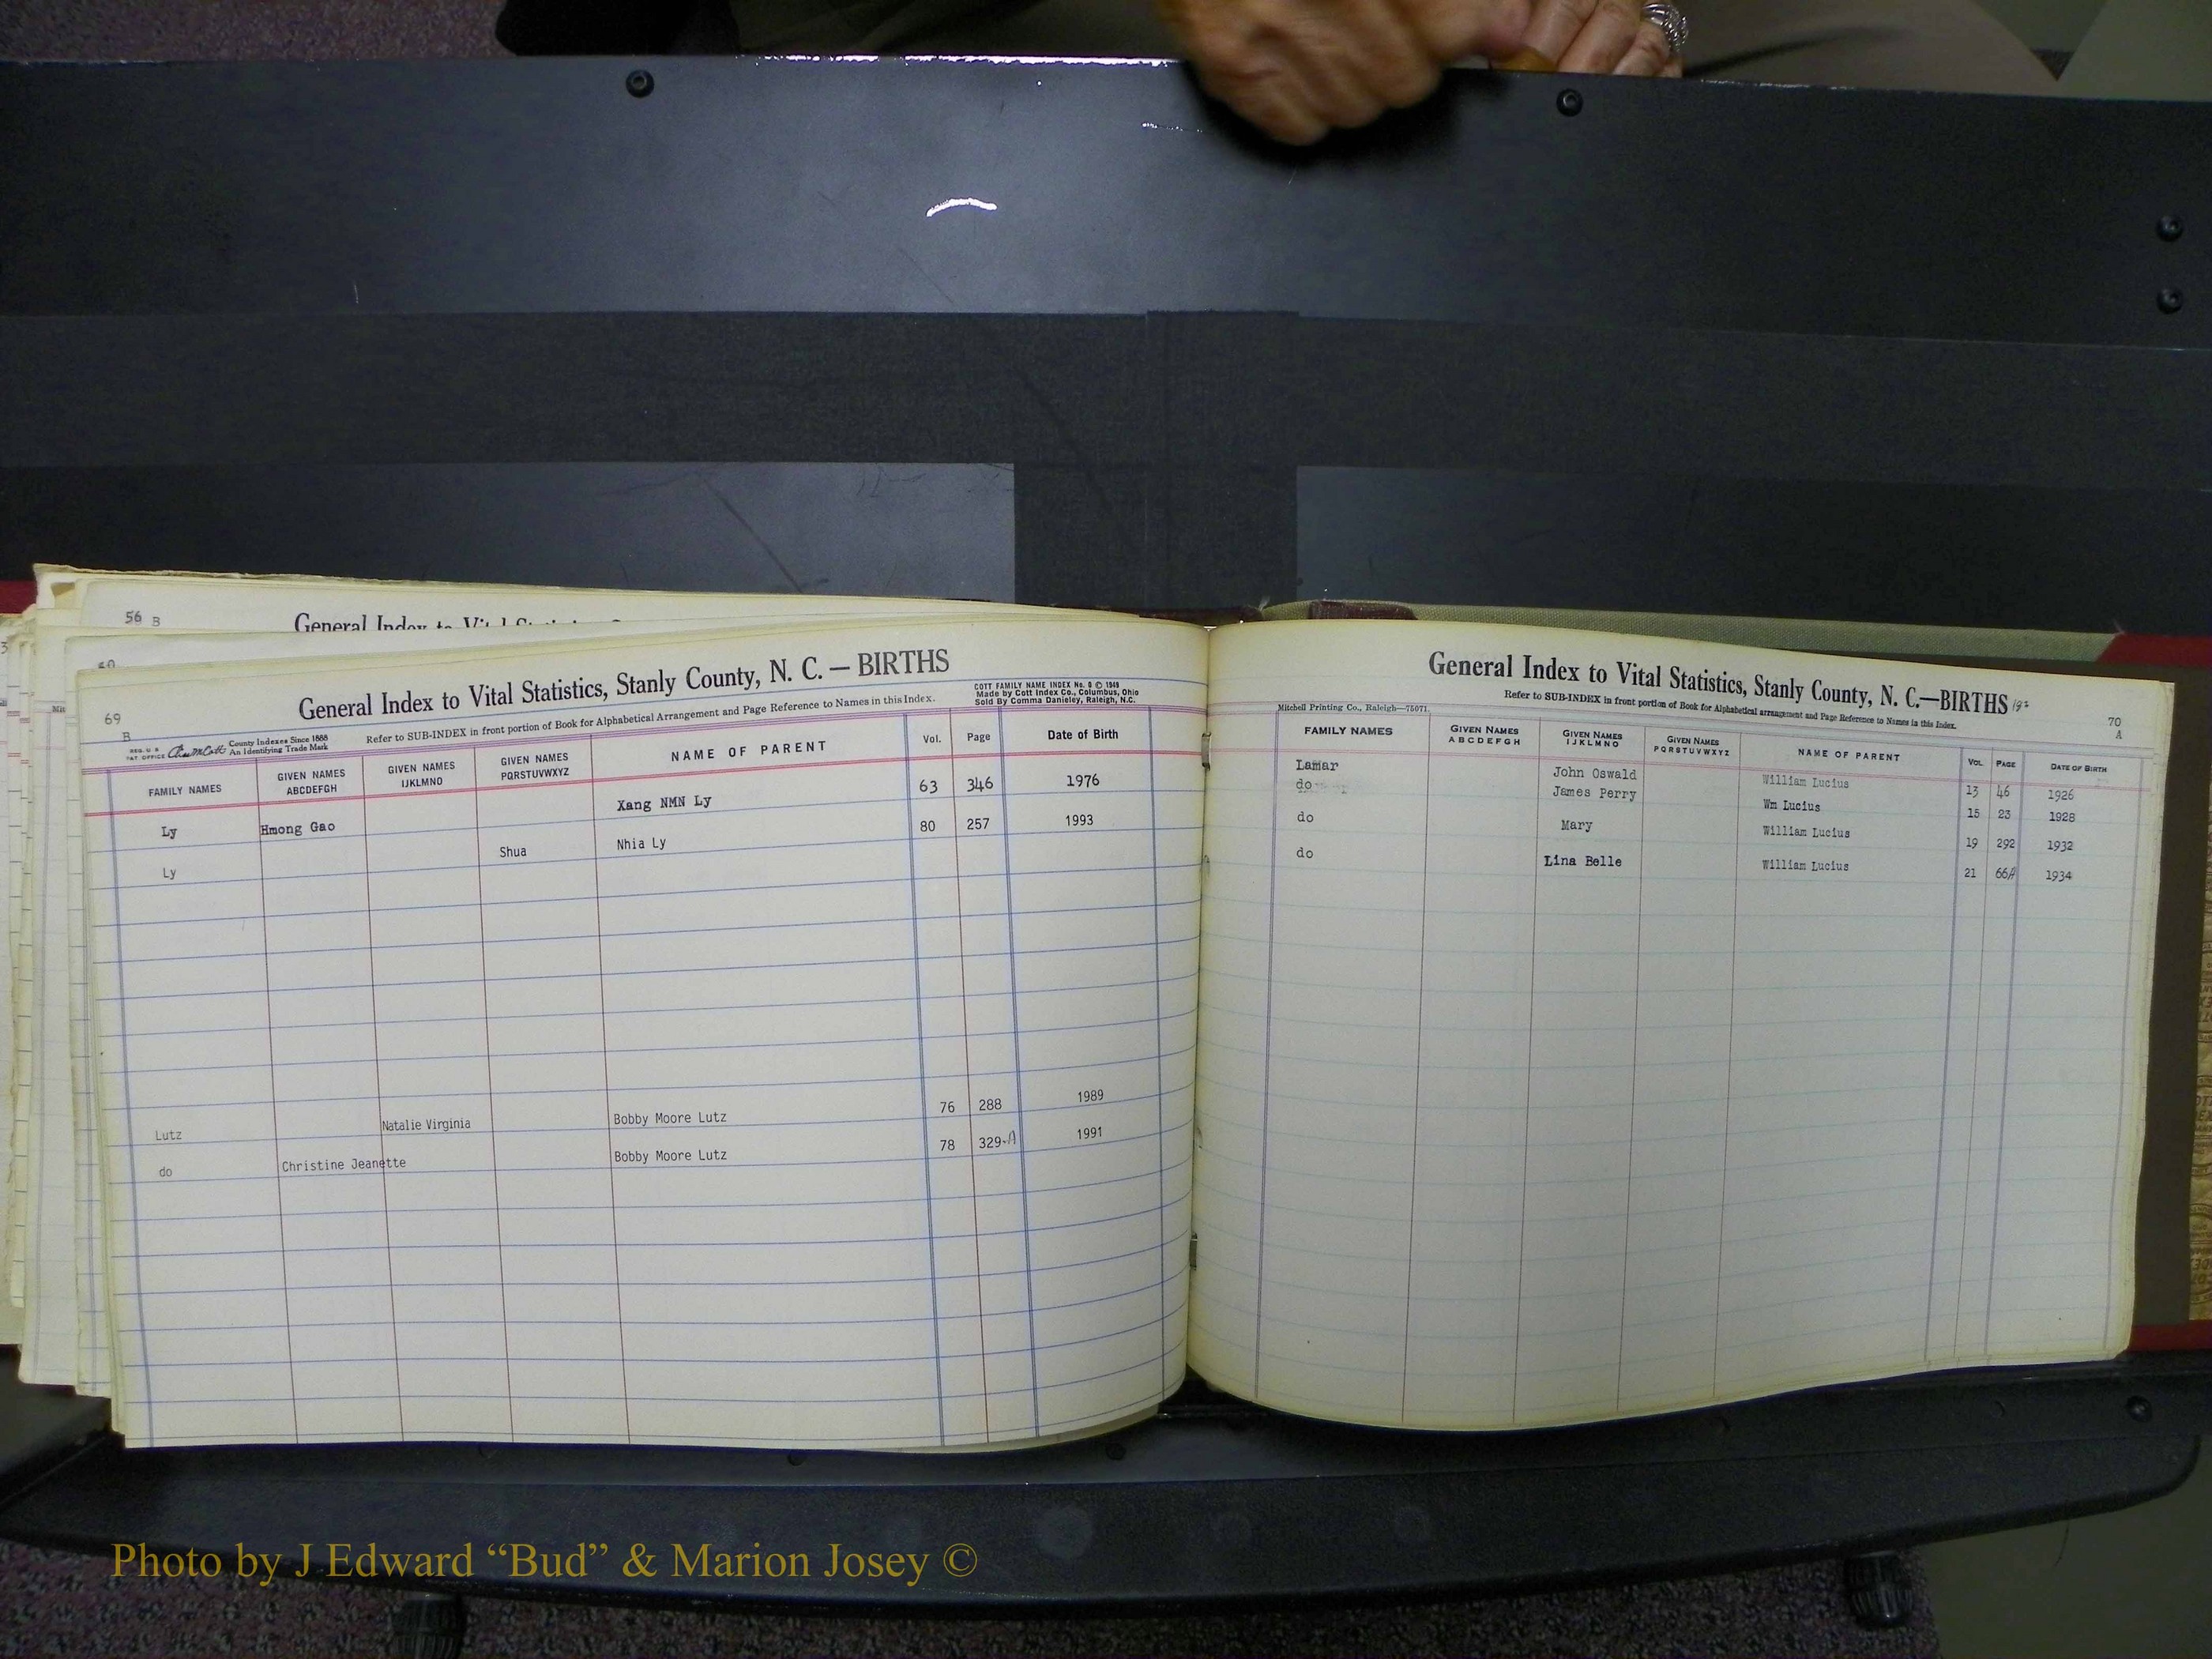 56 B
General Index to Vital Statistics
69
B
General Index to Vital Statistics, Stanly County, N. C. — BIRTHS
COTT FAMILY NAME INDEX No. 6 © 1949
Made by Cott Index Co., Columbus, Ohio
Sold By Comma Danieley, Raleigh, N.C.
REG. U S
PAT OFFICE
County Indexes Since 1888
An Identifying Trade Mark
Refer to SUB-INDEX in front portion of Book for Alphabetical Arrangement and Page Reference to Names in this Index.
FAMILY NAMES GIVEN NAMES ABCDEFGH GIVEN NAMES IJKLMNO GIVEN NAMES PQRSTUVWXYZ NAME OF PARENT Vol. Page Date of Birth
Ly Hmong Gao Xang NMN Ly 63 346 1976
Ly Shua Nhia Ly 80 257 1993
Lutz Natalie Virginia Bobby Moore Lutz 76 288 1989
do Christine Jeanette Bobby Moore Lutz 78 329-A 1991
General Index to Vital Statistics, Stanly County, N. C.—BIRTHS
70
A
Mitchell Printing Co., Raleigh—75071.
Refer to SUB-INDEX in front portion of Book for Alphabetical arrangement and Page Reference to Names in this Index.
FAMILY NAMES GIVEN NAMES ABCDEFGH GIVEN NAMES IJKLMNO GIVEN NAMES PQRSTUVWXYZ NAME OF PARENT VOL PAGE DATE OF BIRTH
Lamar John Oswald William Lucius 13 46 1926
do James Perry Wm Lucius 15 23 1928
do Mary William Lucius 19 292 1932
do Lina Belle William Lucius 21 66A 1934
Photo by J Edward “Bud” & Marion Josey ©